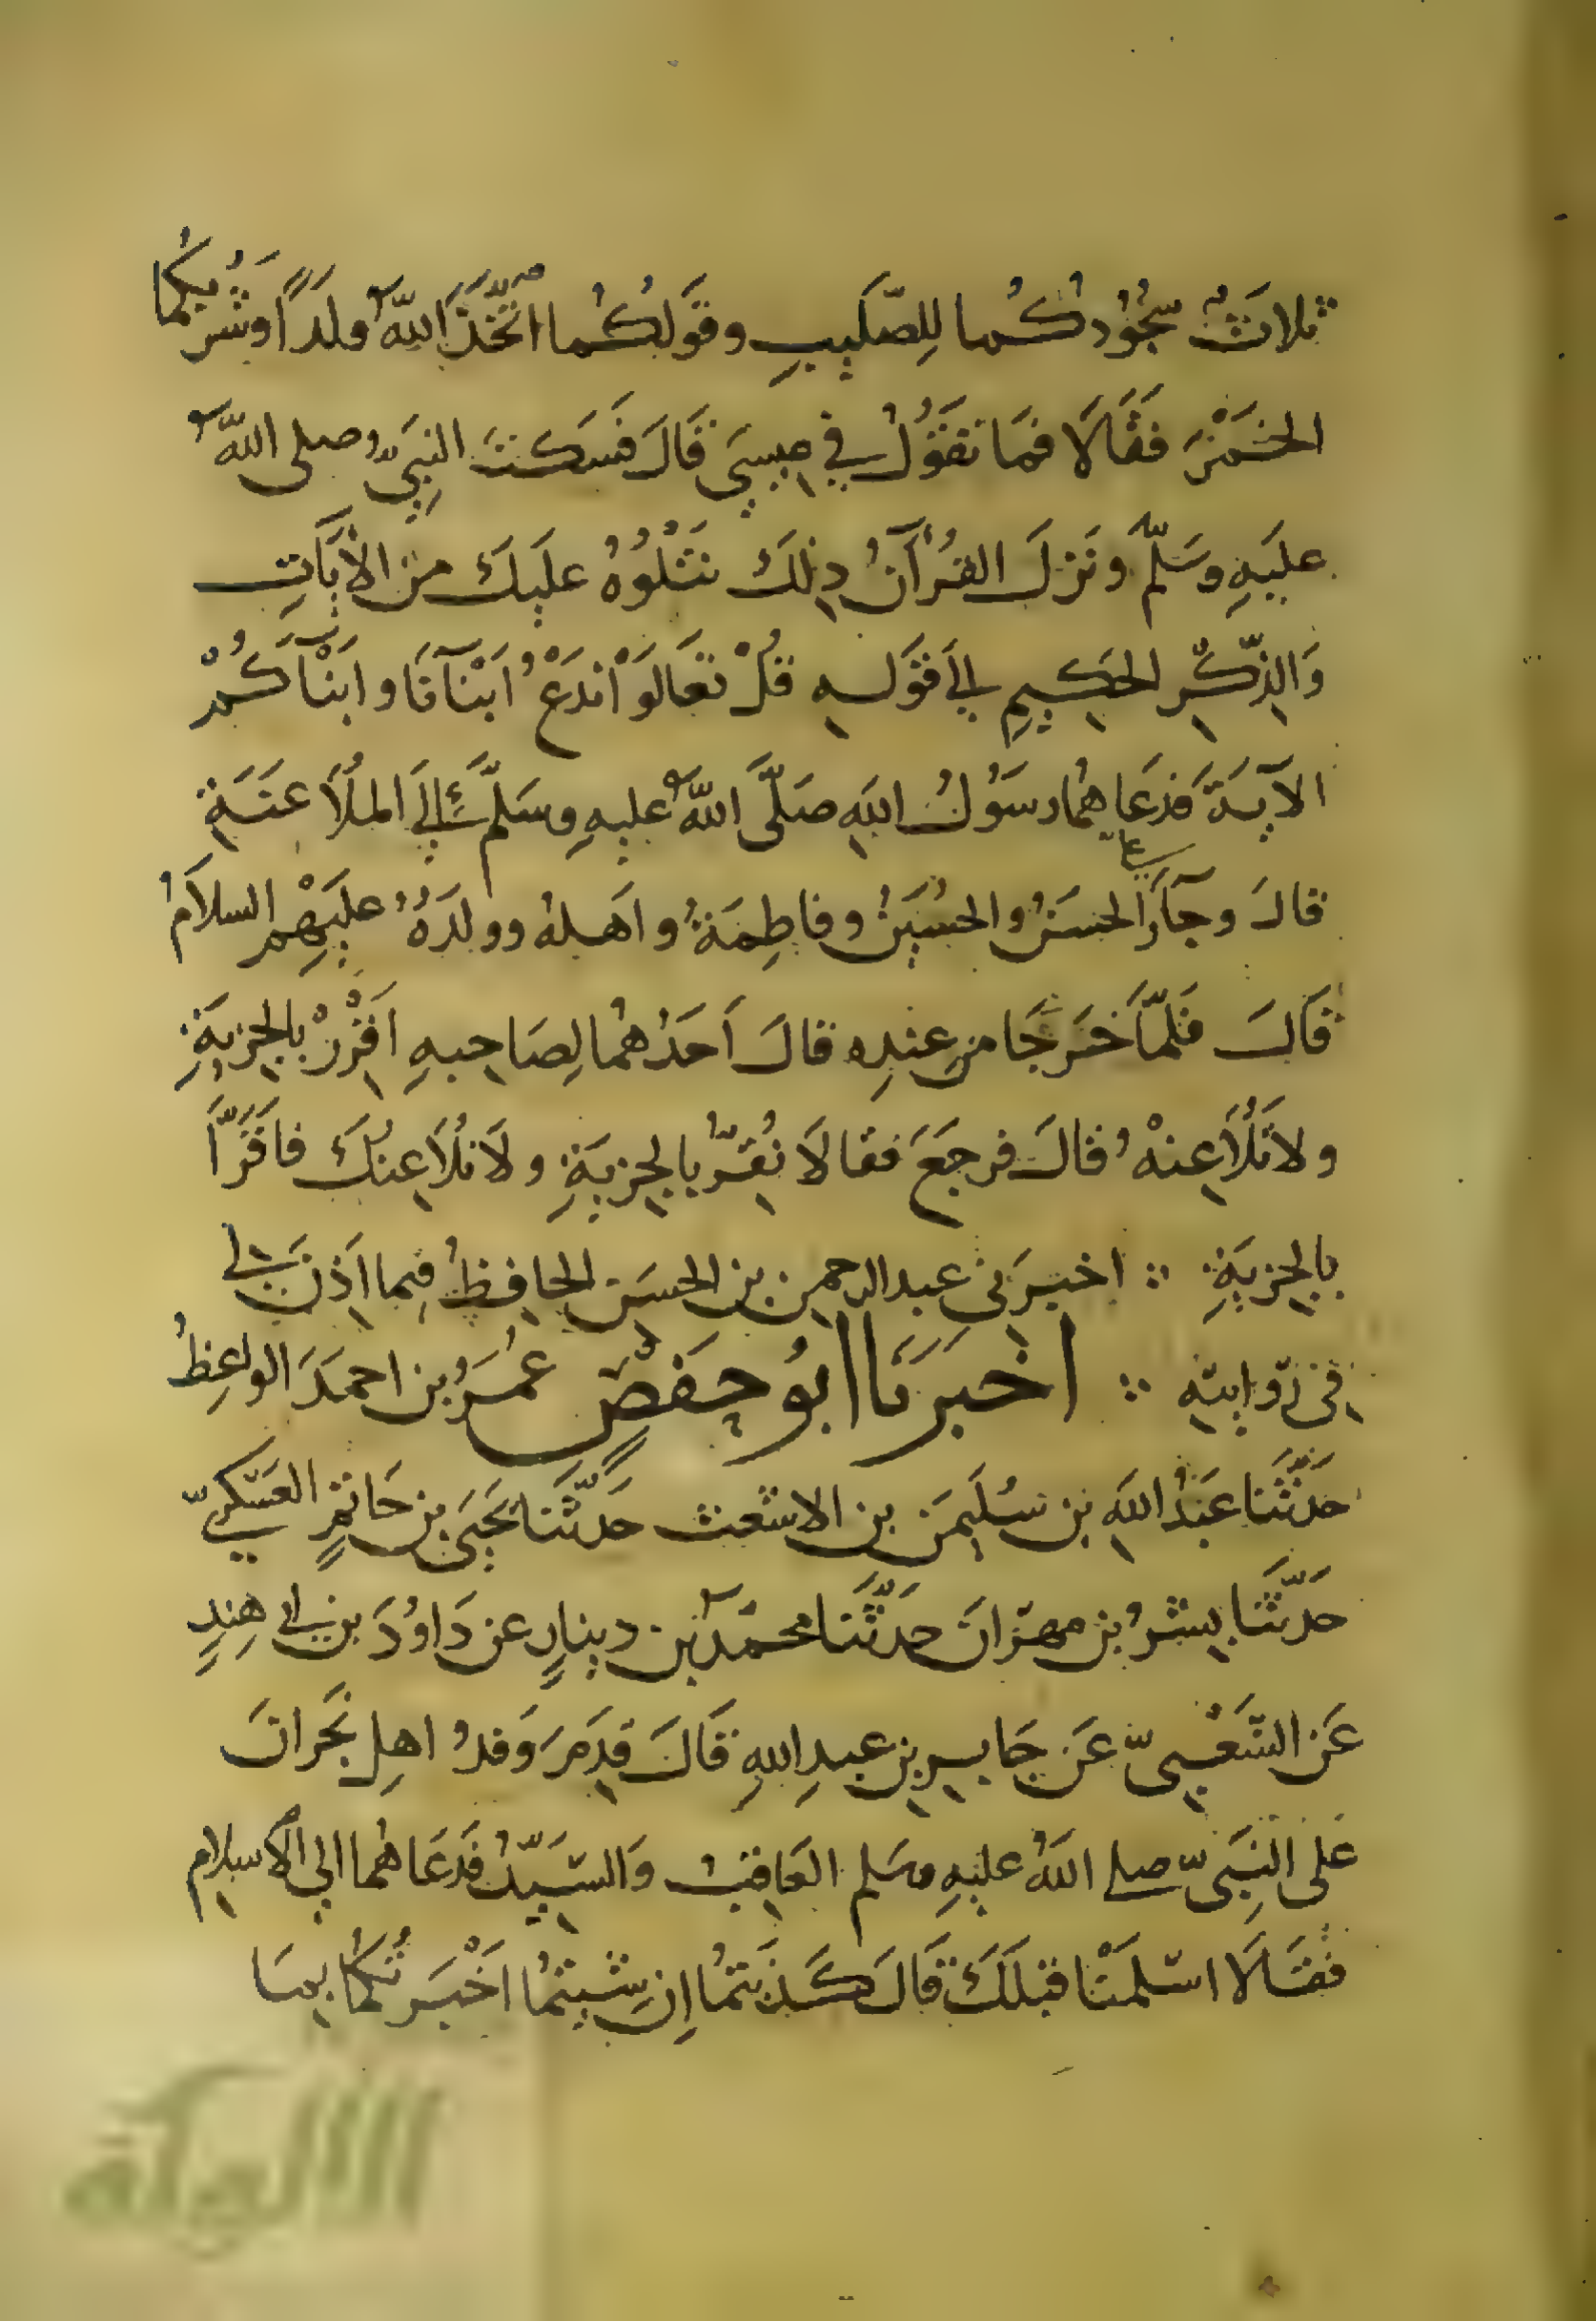 ثلاثٌ سجُودُكُما لِلصَّليبِ وقَولكُما اتَّخَذَ اللهُ ولَداً وشُربُكُما
الخَمْرَ فَقَالَا فمَا تَقُولُ في عِيسَى قَالَ فسَكتَ النبِيُّ صلى اللهُ
عليَهِ وسَلّمَ ونَزلَ القُرْآنُ ذلِكَ نتْلُوْهُ علَيكَ من الأيَاتِ
وَالذِّكرِ الحَكِيمِ إلى قَولهِ قلْ تعَالَوْا ندَعْ ابْنآنَا وابْنَآكُمْ
الآيةَ فدَعَاهُما رسُولُ اللهِ صَلَّى اللهُ عليهِ وسَلّمَ إلى الملُاَعنَةِ
قالَ وجَآءَ الحسَنُ والحسُيَنُ وفاطِمَةُ واَهلهُ وولدَهُ عليَهِمْ السلاَمُ
قَالَ فَلمّا خَرَجَا من عندِه قالَ اَحَدُهُما لِصَاحِبهِ اَقْرِرْ بالجِزيةِ
ولا تُلاَعِنهْ قالَ فرجَعَ فقالَا نُقِرُّ بالجِزيَةِ ولَا نُلاَعِنكَ فاَقَرَّا
بالجِزيَةِ ∴ اخبرَني عبد الرحمن بن الحسَن الحافِظُ فيما اَذِنَ لي
في رِوايتهِ ∴ اخبَرَنَا ابوُ حَفصٍ عُمَرُ بن احمدَ الواعِظُ
حَدَّثَنا عَبْدُ اللهِ بن سُليَمَن بن الاشعث حَدّثَنا يَحيَى بن حَاتمٍ العَسْكريّ
حَدّثَنا بِشرُ بن مهرَانَ حَدّثَنا محمّدُ بن دينارٍ عن دَاوُدَ بن ابي هِندٍ
عَن الشَعْبيّ عَن جَابِر بن عبدِ اللهِ قَالَ قدِمَ وَفدُ اهلِ نَجرانَ
عَلى النبَيّ صلى اللهُ عليهِ وسَلم العَاقبُ وَالسَّيّدُ فدَعَاهُما الي الاسلامِ
فقَالَا اسْلمَنْا قبلكَ قَالَ كَذَبتمُا اِن شِئتمُا اخْبَرتُكمُا بِمَا
الألوكة